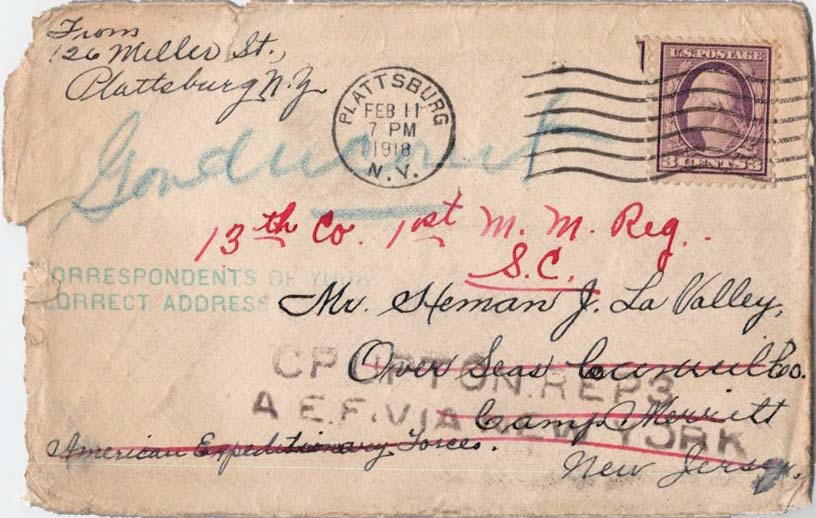 From
126 Miller St.,
Plattsburg N.Y.
PLATTSBURG
FEB 11
7 PM
1918
N.Y.
U.S. POSTAGE
3 CENTS 3
13th Co. 1st M. M. Reg.
S.C.
ORRESPONDENTS OF YOUR
CORRECT ADDRESS
Mr. Heman J. La Valley,
Over Seas Co.
CP UPTON. REP3
A.E.F. VIA NEW YORK
Camp Merritt
American Expeditionary Forces.
New Jersey.